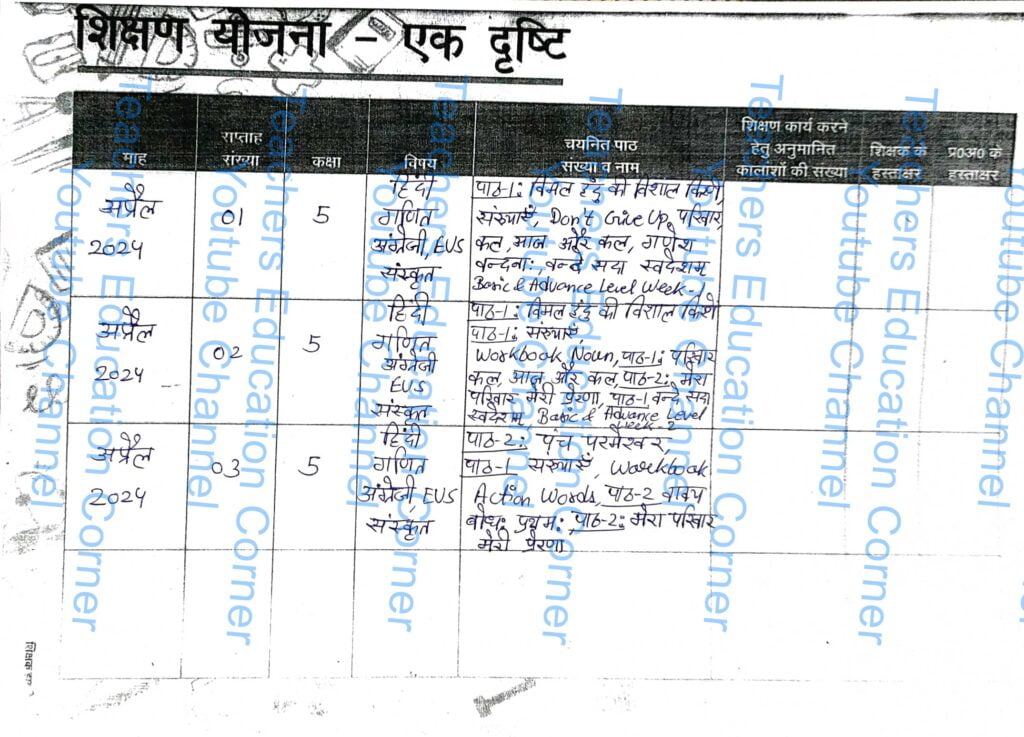 शिक्षण योजना - एक दृष्टि
माह
सप्ताह
संख्या
कक्षा
विषय
चयनित पाठ
संख्या व नाम
शिक्षण कार्य करने
हेतु अनुमानित
कालांशों की संख्या
शिक्षक के
हस्ताक्षर
प्र0अ0 के
हस्ताक्षर
अप्रैल
2024
01
5
हिंदी
गणित
अंग्रेजी, EUS
संस्कृत
पाठ-1: विमल इंदु की विशाल किरणें,
संख्याएँ, Don't Give Up, परिवार
कल, आज और कल, गणेश
वन्दना:, वन्दे सदा स्वदेशम्
Basic & Advance Level Week-1
अप्रैल
2024
02
5
हिंदी
गणित
अंग्रेजी
EUS
संस्कृत
पाठ-1: विमल इंदु की विशाल किरणें
पाठ-1: संख्याएँ,
Workbook Noun, पाठ-1: परिवार
कल, आज और कल, पाठ-2: मेरा
परिवार मेरी प्रेरणा, पाठ-1 वन्दे सदा
स्वदेशम्, Basic & Advance Level
Week-2
अप्रैल
2024
03
5
हिंदी
गणित
अंग्रेजी, EUS
संस्कृत
पाठ-2: पंच परमेश्वर,
पाठ-1 संख्याएँ, Workbook
Action Words, पाठ-2 वाक्य
बोध: प्रथम:, पाठ-2: मेरा परिवार
मेरी प्रेरणा
Teachers Education Corner
Youtube Channel
Teachers Education Corner
Youtube Channel
Teachers Education Corner
Youtube Channel
Teachers Education Corner
Youtube Channel
Teachers Education Corner
Youtube Channel
Teachers Education Corner
Youtube Channel